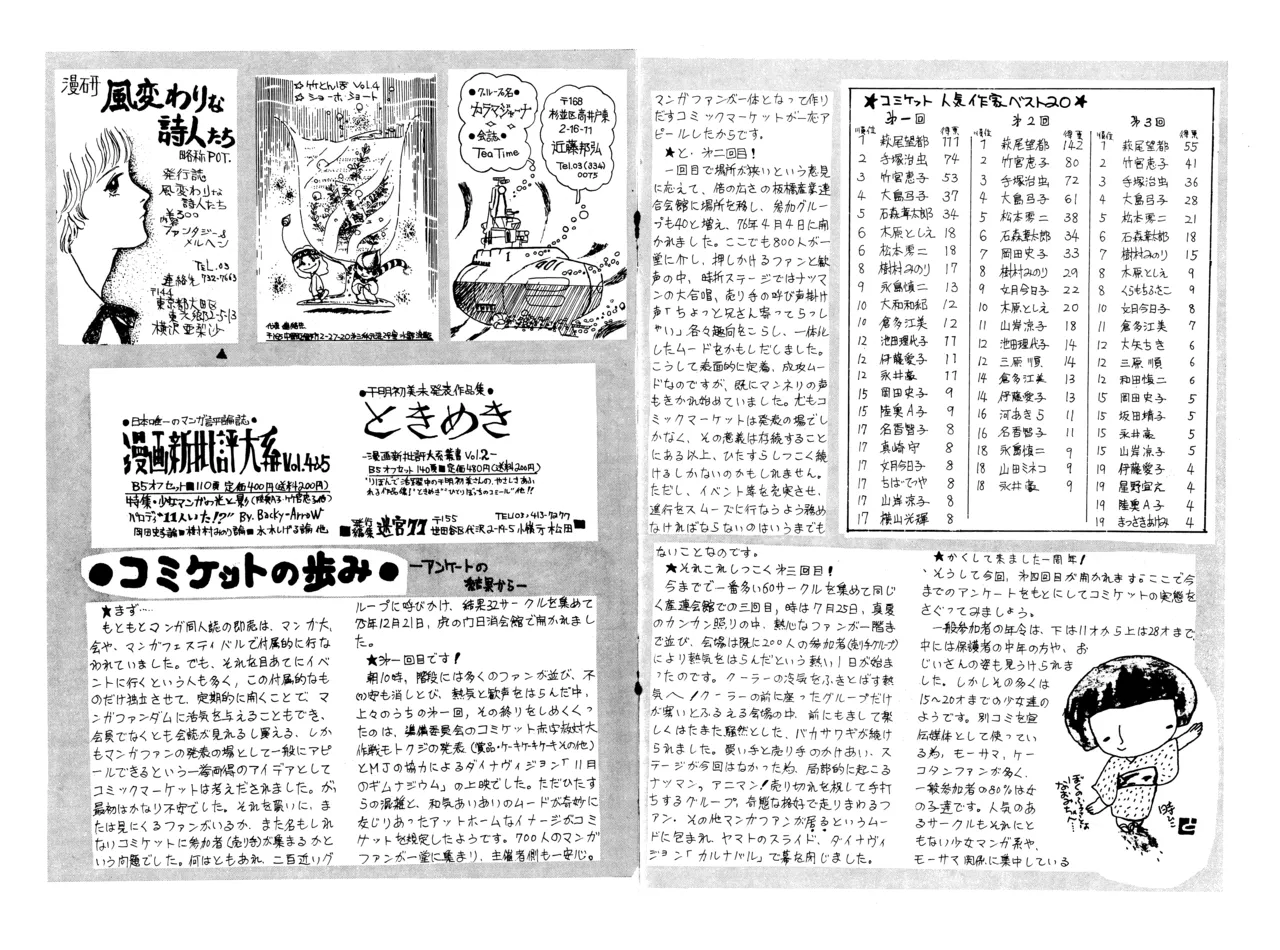 漫研
風変わりな
詩人たち
略称POT.
発行誌
風変わりな
詩人たち
¥300
内容
ファンタジー&
メルヘン
TEL.03
連絡先 932-7663
〒144
東京都大田区
東六郷2-5-13
横沢亜梨沙
☆竹とんぼ Vol.4
☆ショーホ・ショート
●グループ名
カラマジャーナ
●会誌●
Tea Time
〒168
杉並区高井戸東
2-16-11
近藤邦弘
Tel.03(334)
0075
●日本唯一のマンガ評論誌●
漫画新批評大系Vol.4&5
B5オフセット■110頁 定価400円(送料200円)
特集・少女マンガの光と影
パロディ"11人いた!?" By. Backy-ArroW
●千明初美未発表作品集●
ときめき
-漫画新批評大系叢書Vol.2-
B5オフセット140頁■定価480円(送料200円)
■発行編集 迷宮'77 〒155
世田谷区代沢2-19-5小横方松田■
●コミケットの歩み●
—アンケートの
結果から—
★まず……
もともとマンガ同人誌の即売は、マンガ大
会や、マンガフェスティバルで付属的に行な
われていました。でも、それを目あてにイベ
ントに行くという人も多く、この付属的なも
のだけ独立させて、定期的に開くことで、マ
ンガファンダムに活気を与えることもでき、
会員でなくとも会誌が見れるし買える、しか
もマンガファンの発表の場として一般にアピ
ールできるという一挙両得のアイデアとして
コミックマーケットは考えだされました。が、
最初はかなり不安でした。それを買いに、ま
たは見にくるファンがいるか、また名もしれ
ないコミケットに参加者(売り子)が集まるかと
いう問題でした。何はともあれ、二百近いグ
ループに呼びかけ、結果32サークルを集めて
75年12月21日、虎の門日消会館で開かれまし
た。
★第一回目です!
朝10時、階段には多くのファンが並び、不
安も消しとび、熱気と歓声をはらんだ中、
上々のうちの第一回、その終りをしめくくっ
たのは、準備委員会のコミケット赤字救対大
作戦モトクジの発表(賞品・ケーキケーキケーキその他)
とMJの協力によるダイナヴィジョン「11月
のギムナジウム」の上映でした。ただひたす
らの混雑と、和気あいあいのムードが奇妙に
交じりあったアットホームなイメージがコミ
ケットを規定したようです。700人のマンガ
ファンが一堂に集まり、主催者側も一安心。
マンガファンが一体となって作り
だすコミックマーケットが一応ア
ピールしたからです。
★と・第二回目!
一回目で場所が狭いという意見
に応えて、倍の広さの板橋産業連
合会館に場所を移し、参加グルー
プも40と増え、76年4月4日に開
かれました。ここでも800人が一
堂に介し、押しかけるファンと歓
声の中、時折ステージではナツマ
ンの大合唱、売り手の呼び声掛け
声「ちょっと兄さん寄ってらっし
ゃい」各々趣向をこらし、一体化
したムードをかもしだしました。
こうして表面的に定着、成攻ムー
ドなのですが、既にマンネリの声
もきかれ始めていました。尤もコ
ミックマーケットは発表の場でし
かなく、その意義は存続すること
にある以上、ひたすらしつこく続
けるしかないのかもしれません。
ただし、イベント等を充実させ、
進行をスムーズに行なうよう務め
なければならないのはいうまでも
ないことなのです。
★コミケット 人気作家ベスト20★
第一回
順位 得票
1 萩尾望都 111
2 手塚治虫 74
3 竹宮恵子 53
4 大島弓子 37
5 石森章太郎 34
6 木原としえ 18
6 松本零二 18
8 樹村みのり 17
9 永島慎二 13
10 大和和紀 12
10 倉多江美 12
12 池田理代子 11
12 伊藤愛子 11
12 永井豪 11
15 岡田史子 9
15 陸奥A子 9
17 名香智子 8
17 真崎守 8
17 文月今日子 8
17 ちばてつや 8
17 山岸凉子 8
17 横山光輝 8
第2回
順位 得票
1 萩尾望都 142
2 竹宮恵子 80
3 手塚治虫 72
4 大島弓子 61
5 松本零二 38
6 石森章太郎 34
7 岡田史子 33
8 樹村みのり 29
9 文月今日子 22
10 木原としえ 20
11 山岸凉子 18
12 池田理代子 14
12 三原順 14
14 倉多江美 13
14 伊藤愛子 13
16 河あきら 11
16 名香智子 11
18 永島慎二 9
18 山田ミネコ 9
18 永井豪 9
第3回
順位 得票
1 萩尾望都 55
2 竹宮恵子 41
3 手塚治虫 36
4 大島弓子 28
5 松本零二 21
6 石森章太郎 18
7 樹村みのり 15
8 木原としえ 9
8 くらもちふさこ 9
10 文月今日子 8
11 倉多江美 7
12 大矢ちき 6
12 三原順 6
12 和田慎二 6
15 岡田史子 5
15 坂田靖子 5
15 永井豪 5
15 山岸凉子 5
19 伊藤愛子 4
19 星野宣之 4
19 陸奥A子 4
19 まつざきあけみ 4
★それこれしつこく第三回目!
今までで一番多い60サークルを集めて同じ
く産連会館での三回目,時は7月25日,真夏
のカンカン照りの中、熱心なファンが一階ま
で並び、会場は既に200人の参加者(売り手グループ)
により熱気をはらんだという熱い1日が始ま
ったのです。クーラーの冷気をふきとばす熱
気へ!クーラーの前に座ったグループだけ
が寒いとふるえる会場の中、前にもまして楽
しくはたまた騒然とした、バカサワギが続け
られました。買い手と売り手のかけあい、ス
テージが今回はなかった為、局部的に起こる
ナツマン、アニマン!売り切れを祝して手打
ちするグループ、奇態な格好で走りまわるフ
ァン、その他マンガファンが居るというムー
ドに包まれ、ヤマトのスライド、ダイナヴィ
ジョン「カルナバル」で幕を閉じました。
★かくして来ました一周年!
そうして今回、第四回目が開かれます。ここで今
までのアンケートをもとにしてコミケットの実態を
さぐってみましょう。
一般参加者の年令は、下は11才から上は28才まで、
中には保護者の中年の方や、お
じいさんの姿も見うけられま
した。しかしその多くは
15〜20才までの少女達の
ようです。別コミを宣
伝媒体として使ってい
る為、モーサマ、ケー
コタンファンが多く、
一般参加者の80%は女
の子達です。人気のあ
るサークルもそれにと
もない少女マンガ系や、
モーサマ関係に集中している